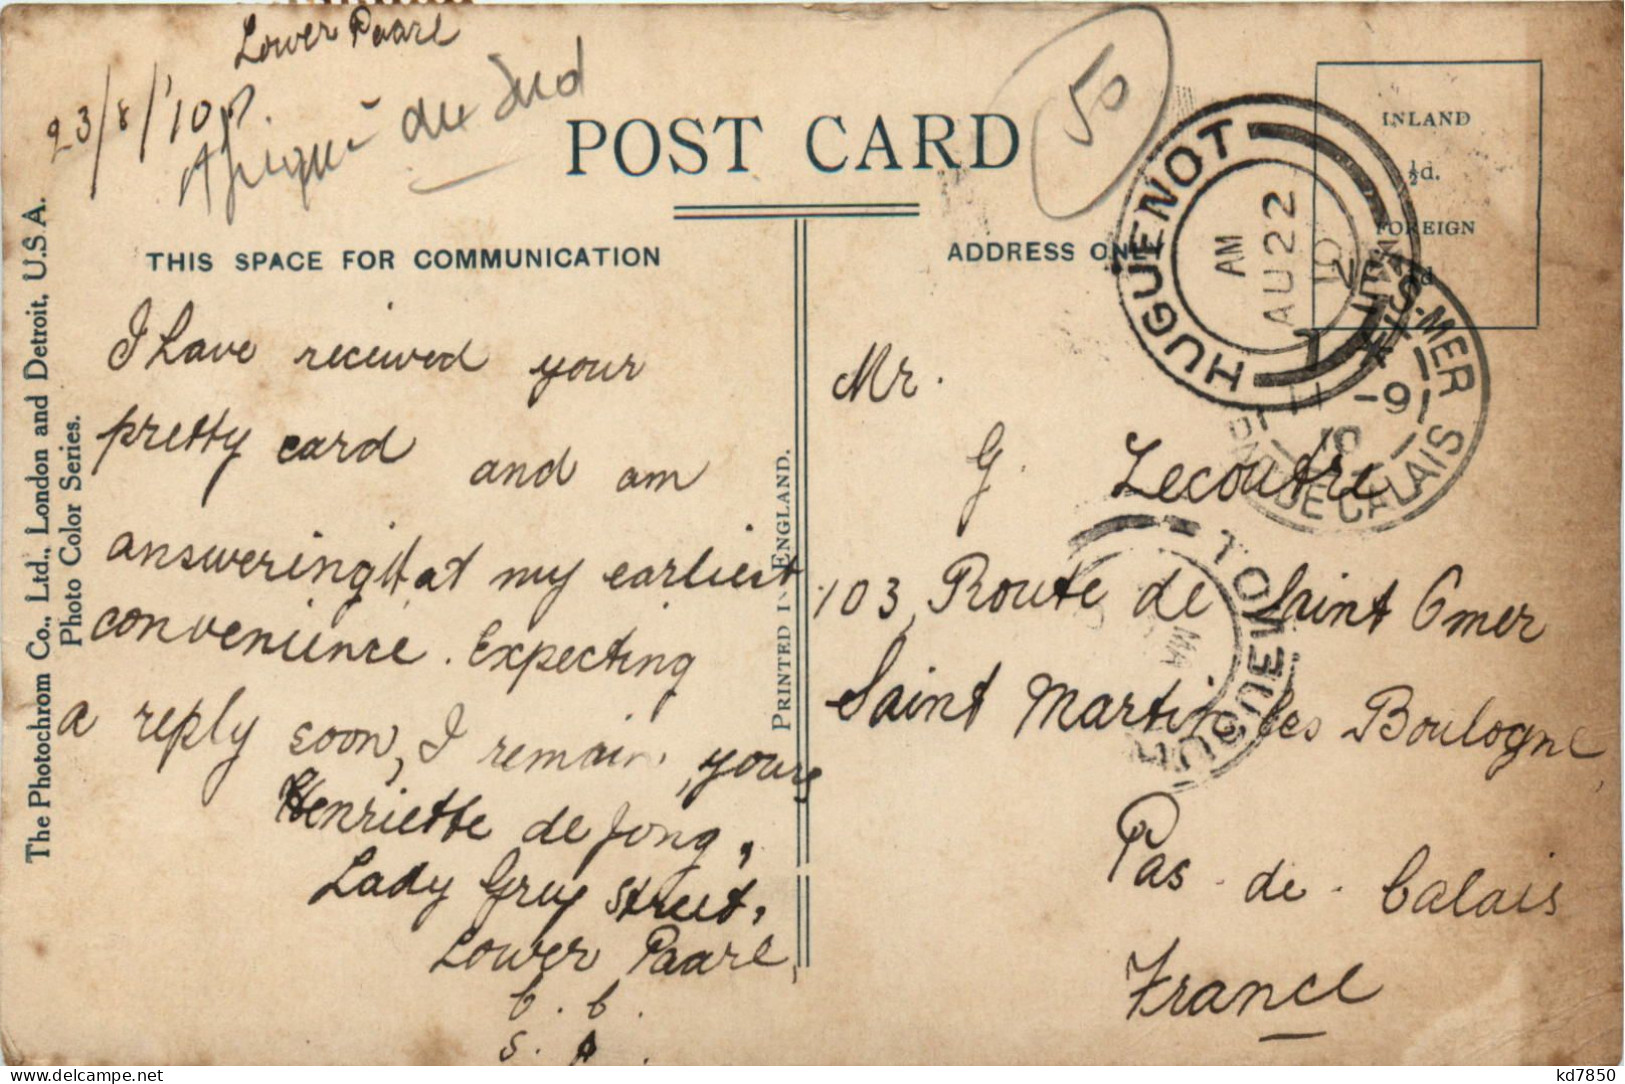 Lower Paarl
23/8/'10
Afrique du Sud
50
POST CARD
THIS SPACE FOR COMMUNICATION
ADDRESS ONLY
INLAND
½d.
FOREIGN
d
HUGUENOT
AM
AU 22
10
-MER
-9
10
PAS DE CALAIS
The Photochrom Co., Ltd., London and Detroit, U.S.A.
Photo Color Series.
PRINTED IN ENGLAND.
I have recieved your
pretty card and am
answering it at my earliest
convenience. Expecting
a reply soon, I remain, yours
Henriette de Jong,
Lady Grey Street,
Lower Paarl,
C. C.
S. A.
Mr.
G. Lecoutre
103, Route de Saint Omer
Saint Martin les Boulogne
Pas-de-Calais
France
TOWN
kd7850